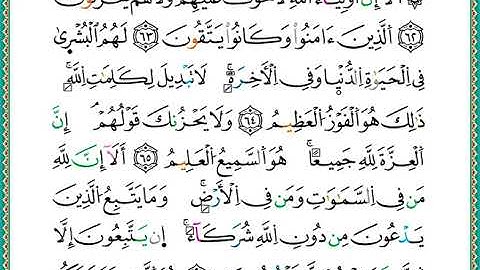 أَلَآ إِنَّ أَوْلِيَآءَ ٱللَّهِ لَا خَوْفٌ عَلَيْهِمْ وَلَا هُمْ يَحْزَنُونَ
﴿٦٢﴾ ٱلَّذِينَ ءَامَنُوا۟ وَكَانُوا۟ يَتَّقُونَ ﴿٦٣﴾ لَهُمُ ٱلْبُشْرَىٰ
فِى ٱلْحَيَوٰةِ ٱلدُّنْيَا وَفِى ٱلْـَٔاخِرَةِ ۚ لَا تَبْدِيلَ لِكَلِمَـٰتِ ٱللَّهِ ۚ
ذَٰلِكَ هُوَ ٱلْفَوْزُ ٱلْعَظِيمُ ﴿٦٤﴾ وَلَا يَحْزُنكَ قَوْلُهُمْ ۘ إِنَّ
ٱلْعِزَّةَ لِلَّهِ جَمِيعًا ۚ هُوَ ٱلسَّمِيعُ ٱلْعَلِيمُ ﴿٦٥﴾ أَلَآ إِنَّ لِلَّهِ
مَن فِى ٱلسَّمَـٰوَٰتِ وَمَن فِى ٱلْأَرْضِ ۗ وَمَا يَتَّبِعُ ٱلَّذِينَ
يَدْعُونَ مِن دُونِ ٱللَّهِ شُرَكَآءَ ۚ إِن يَتَّبِعُونَ إِلَّا